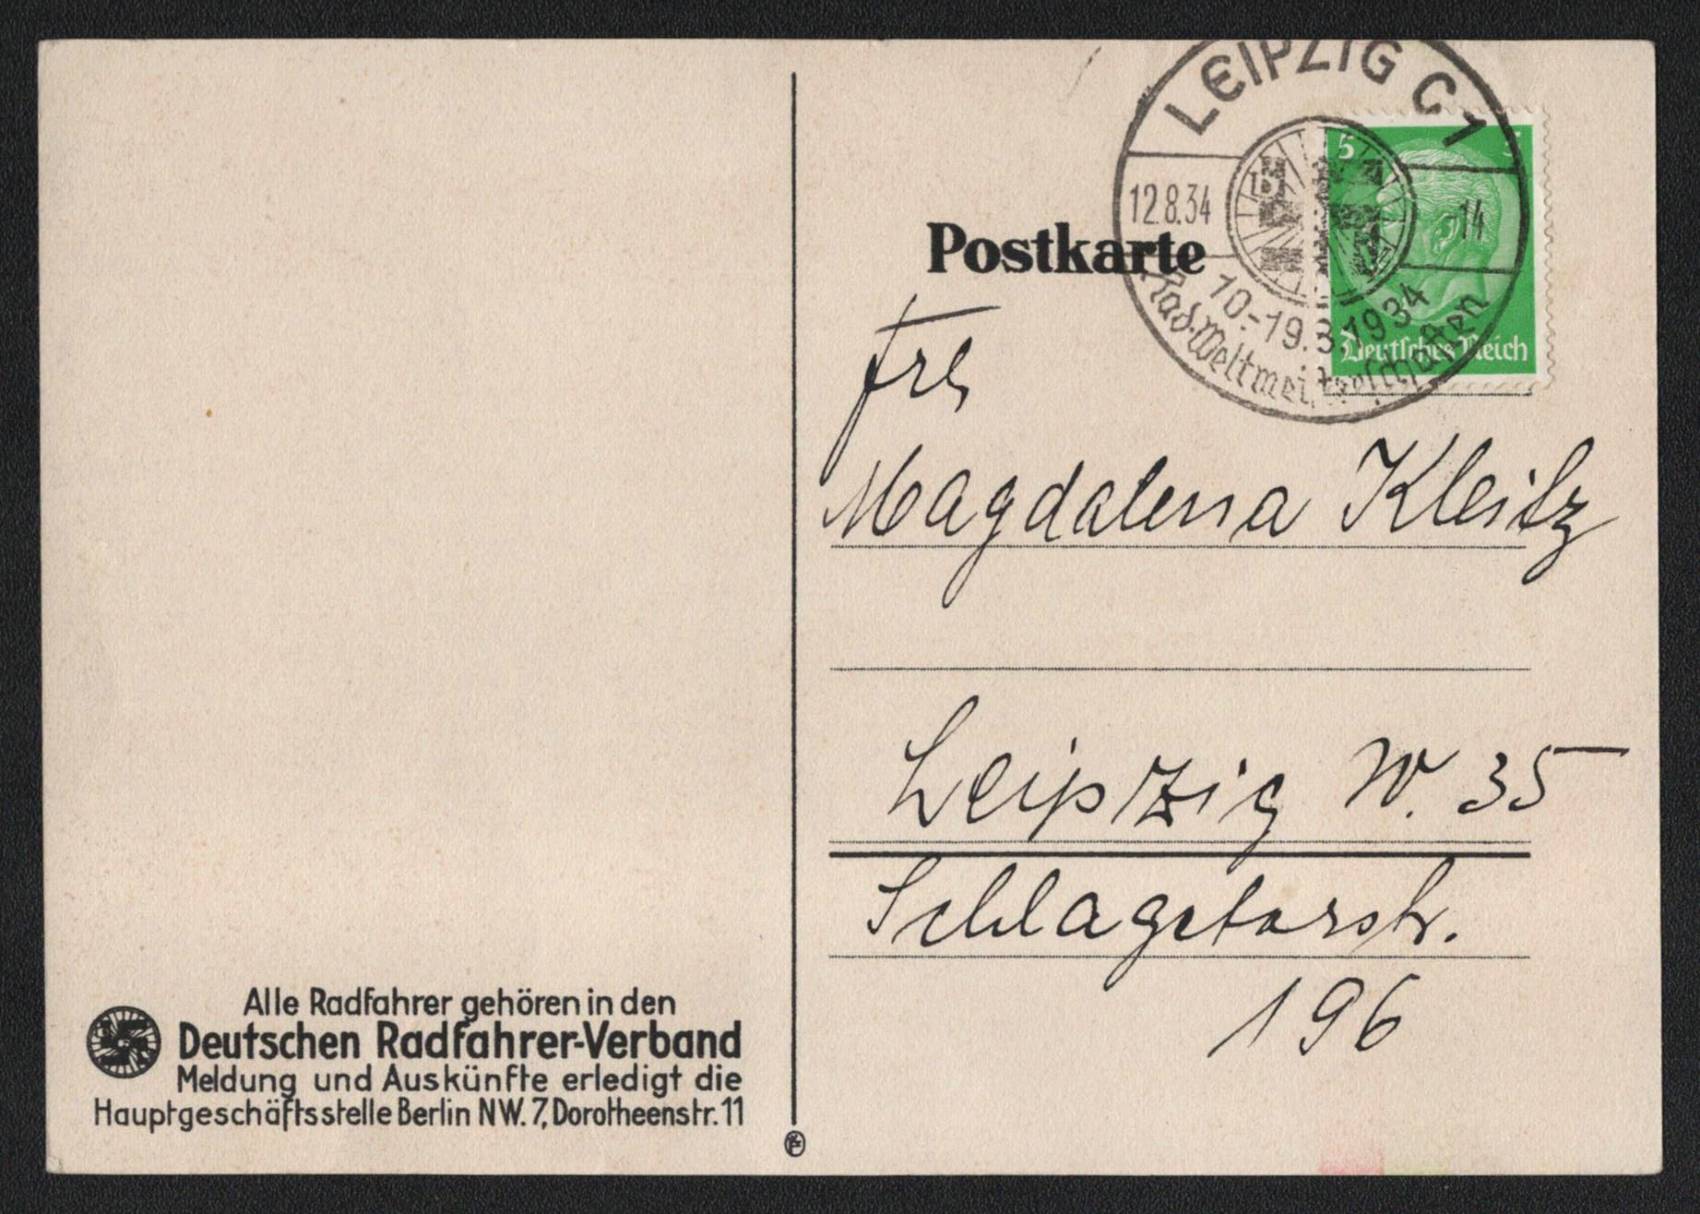 LEIPZIG C 1
12.8.34
14
10.-19.8.1934
Rad-Weltmeisterschaften
5
Deutsches Reich
Postkarte
Frl
Magdalena Kleitz
Leipzig W. 35
Schlageterstr.
196
Alle Radfahrer gehören in den
Deutschen Radfahrer-Verband
Meldung und Auskünfte erledigt die
Hauptgeschäftsstelle Berlin NW. 7, Dorotheenstr. 11